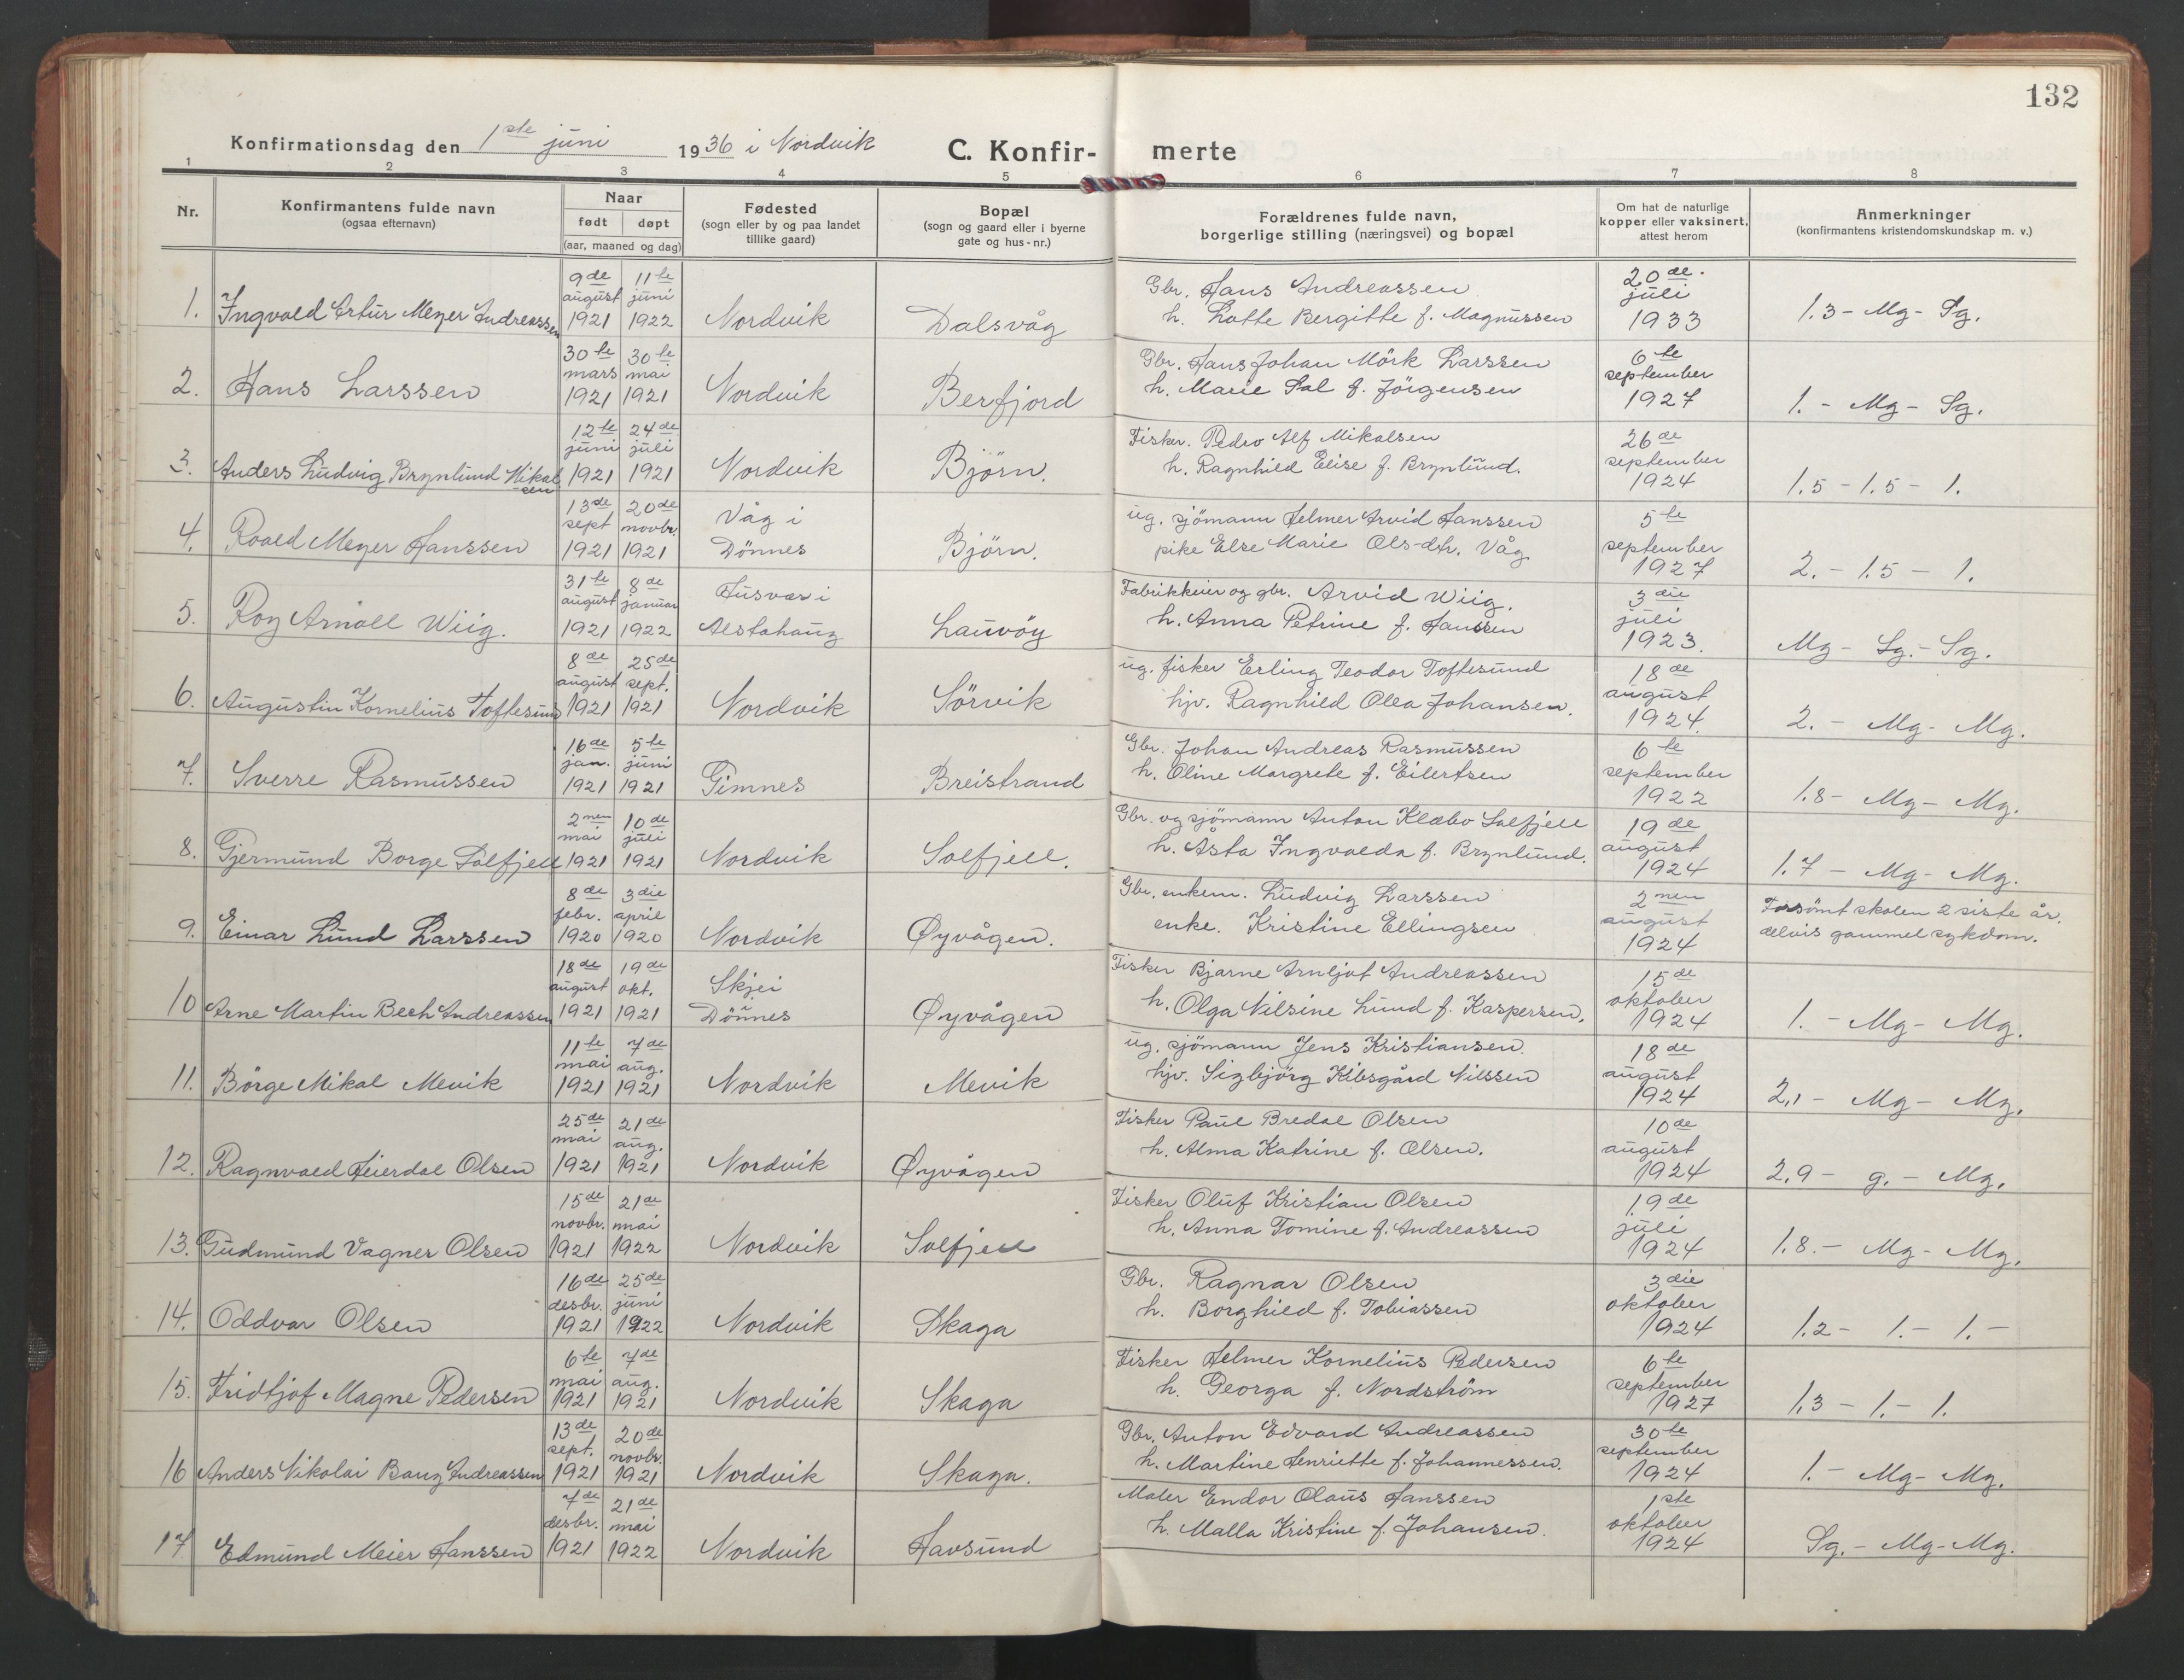 132
Konfirmationsdag den 1ste juni 1936 i Nordvik C. Konfir- merte
1 2 3 4 5 6 7 8
Nr. Konfirmantens fulde navn (ogsaa efternavn) Naar født døpt (aar, maaned og dag) Fødested (sogn eller by og paa landet tillike gaard) Bopæl (sogn og gaard eller i byerne gate og hus-nr.) Forældrenes fulde navn, borgerlige stilling (næringsvei) og bopæl Om hat de naturlige kopper eller vaksinert, attest herom Anmerkninger (konfirmantens kristendomskundskap m. v.)
1. Ingvald Ertur Meyer Andreassen 9de august 1921 11te juni 1922 Nordvik Dalsvåg Gbr. Hans Andreassen
h. Lotte Bergitte f. Magnussen 20de juli 1933 1.3 - Mg - Sg.
2. Hans Larssen 30te mars 1921 30te mai 1921 Nordvik Berfjord Gbr. Hans Johan Mörk Larssen
h. Marie Sal f. Jörgensen 6te september 1927 1. - Mg - Sg.
3. Anders Ludvig Brynlund Mikalsen 12te juni 1921 24de juli 1921 Nordvik Björn. Fisker. Pedro Alf Mikalsen
h. Ragnhild Elise f. Brynlund. 26de september 1924 1.5 - 1.5 - 1.
4. Roald Meyer Hanssen 13de sept 1921 20de novbr. 1921 Våg i Dönnes Björn. ug. sjömann Helmer Arvid Hanssen
pike Else Marie Ols-dtr. Våg 5te september 1927 2. - 1.5 - 1.
5. Roy Arnoll Wiig. 31te august 1921 8de januar 1922 Husvær i Alstahaug Lauvöy Fabrikkeier og gbr. Arvid Wiig.
h. Anna Petrine f. Hanssen 3die juli 1923. Mg - Sg. - Sg.
6. Augustin Kornelius Toftesund 8de august 1921 25de sept. 1921 Nordvik Sörvik ug. fisker Erling Teodor Toftesund
hjv. Ragnhild Olea Johansen. 18de august 1924. 2. - Mg - Mg.
7. Sverre Rasmussen 16de jan. 1921 5te juni 1921 Gimnes Breistrand Gbr. Johan Andreas Rasmussen
h. Oline Margrete f. Eilertsen 6te september 1922 1.8 - Mg - Mg.
8. Gjermund Borge Solfjell 2nen mai 1921 10de juli 1921 Nordvik Solfjell. Gbr. og sjömann Anton Klæbo Solfjell
h. Åsta Ingvalda f. Brynlund. 19de august 1924 1.7 - Mg - Mg.
9. Einar Lund Larssen 8de febr. 1920 3die april 1920 Nordvik Øyvågen. Gbr. enkem. Ludvig Larssen
enke. Kristine Ellingsen 2nen august 1924 Forsömt skolen 2 siste år. delvis gammel sykdom.
10 Arne Martin Bech Andreassen 18de august 1921 19de okt. 1921 Skjei Dönnes Øyvågen Fisker Bjarne Arnljot Andreassen
h. Olga Nilsine Lund f. Kaspersen. 15de oktober 1924 1. - Mg - Mg.
11. Börge Mikal Mevik 11te mai 1921 7de aug. 1921 Nordvik Mevik ug. sjömann Jens Kristiansen.
hjv. Sigbjörg Kibsgård Nilssen 18de august 1924 2,1 - Mg - Mg.
12. Ragnvald Heierdal Olsen 25de mai 1921 21de aug. 1921 Nordvik Øyvågen Fisker Paul Bredal Olsen
h. Alma Katrine f. Olsen. 10de august 1924 2,9 - g. - Mg.
13. Gudmund Vagner Olsen 15de novbr. 1921 21de mai 1922 Nordvik Solfjell Fisker Oluf Kristian Olsen
h. Anna Tomine f. Andreassen 19de juli 1924 1.8. - Mg - Mg.
14. Oddvar Olsen 16de desbr. 1921 25de juni 1922 Nordvik Skaga Gbr. Ragnar Olsen
h. Borghild f. Tobiassen 3die oktober 1924 1.2 - 1. - 1. -
15. Fridtjof Magne Pedersen 6te mai 1921 7de aug. 1921 Nordvik Skaga Fisker Helmer Kornelius Pedersen
h. Georga f. Nordström 6te september 1927 1,3 - 1. - 1.
16 Anders Nikolai Bang Andreassen 13de sept. 1921 20de novbr. 1921 Nordvik Skaga. Gbr. Anton Edvard Andreassen
h. Martine Henriette f. Johannessen. 30te september 1924 1. - Mg - Mg.
17 Edmund Meier Hanssen 7de desbr. 1921 21de mai 1922 Nordvik Havsund Maler Endor Olaus Hanssen
h. Malla Kristine f. Johansen. 1ste oktober 1924 Sg. - Mg - Mg.